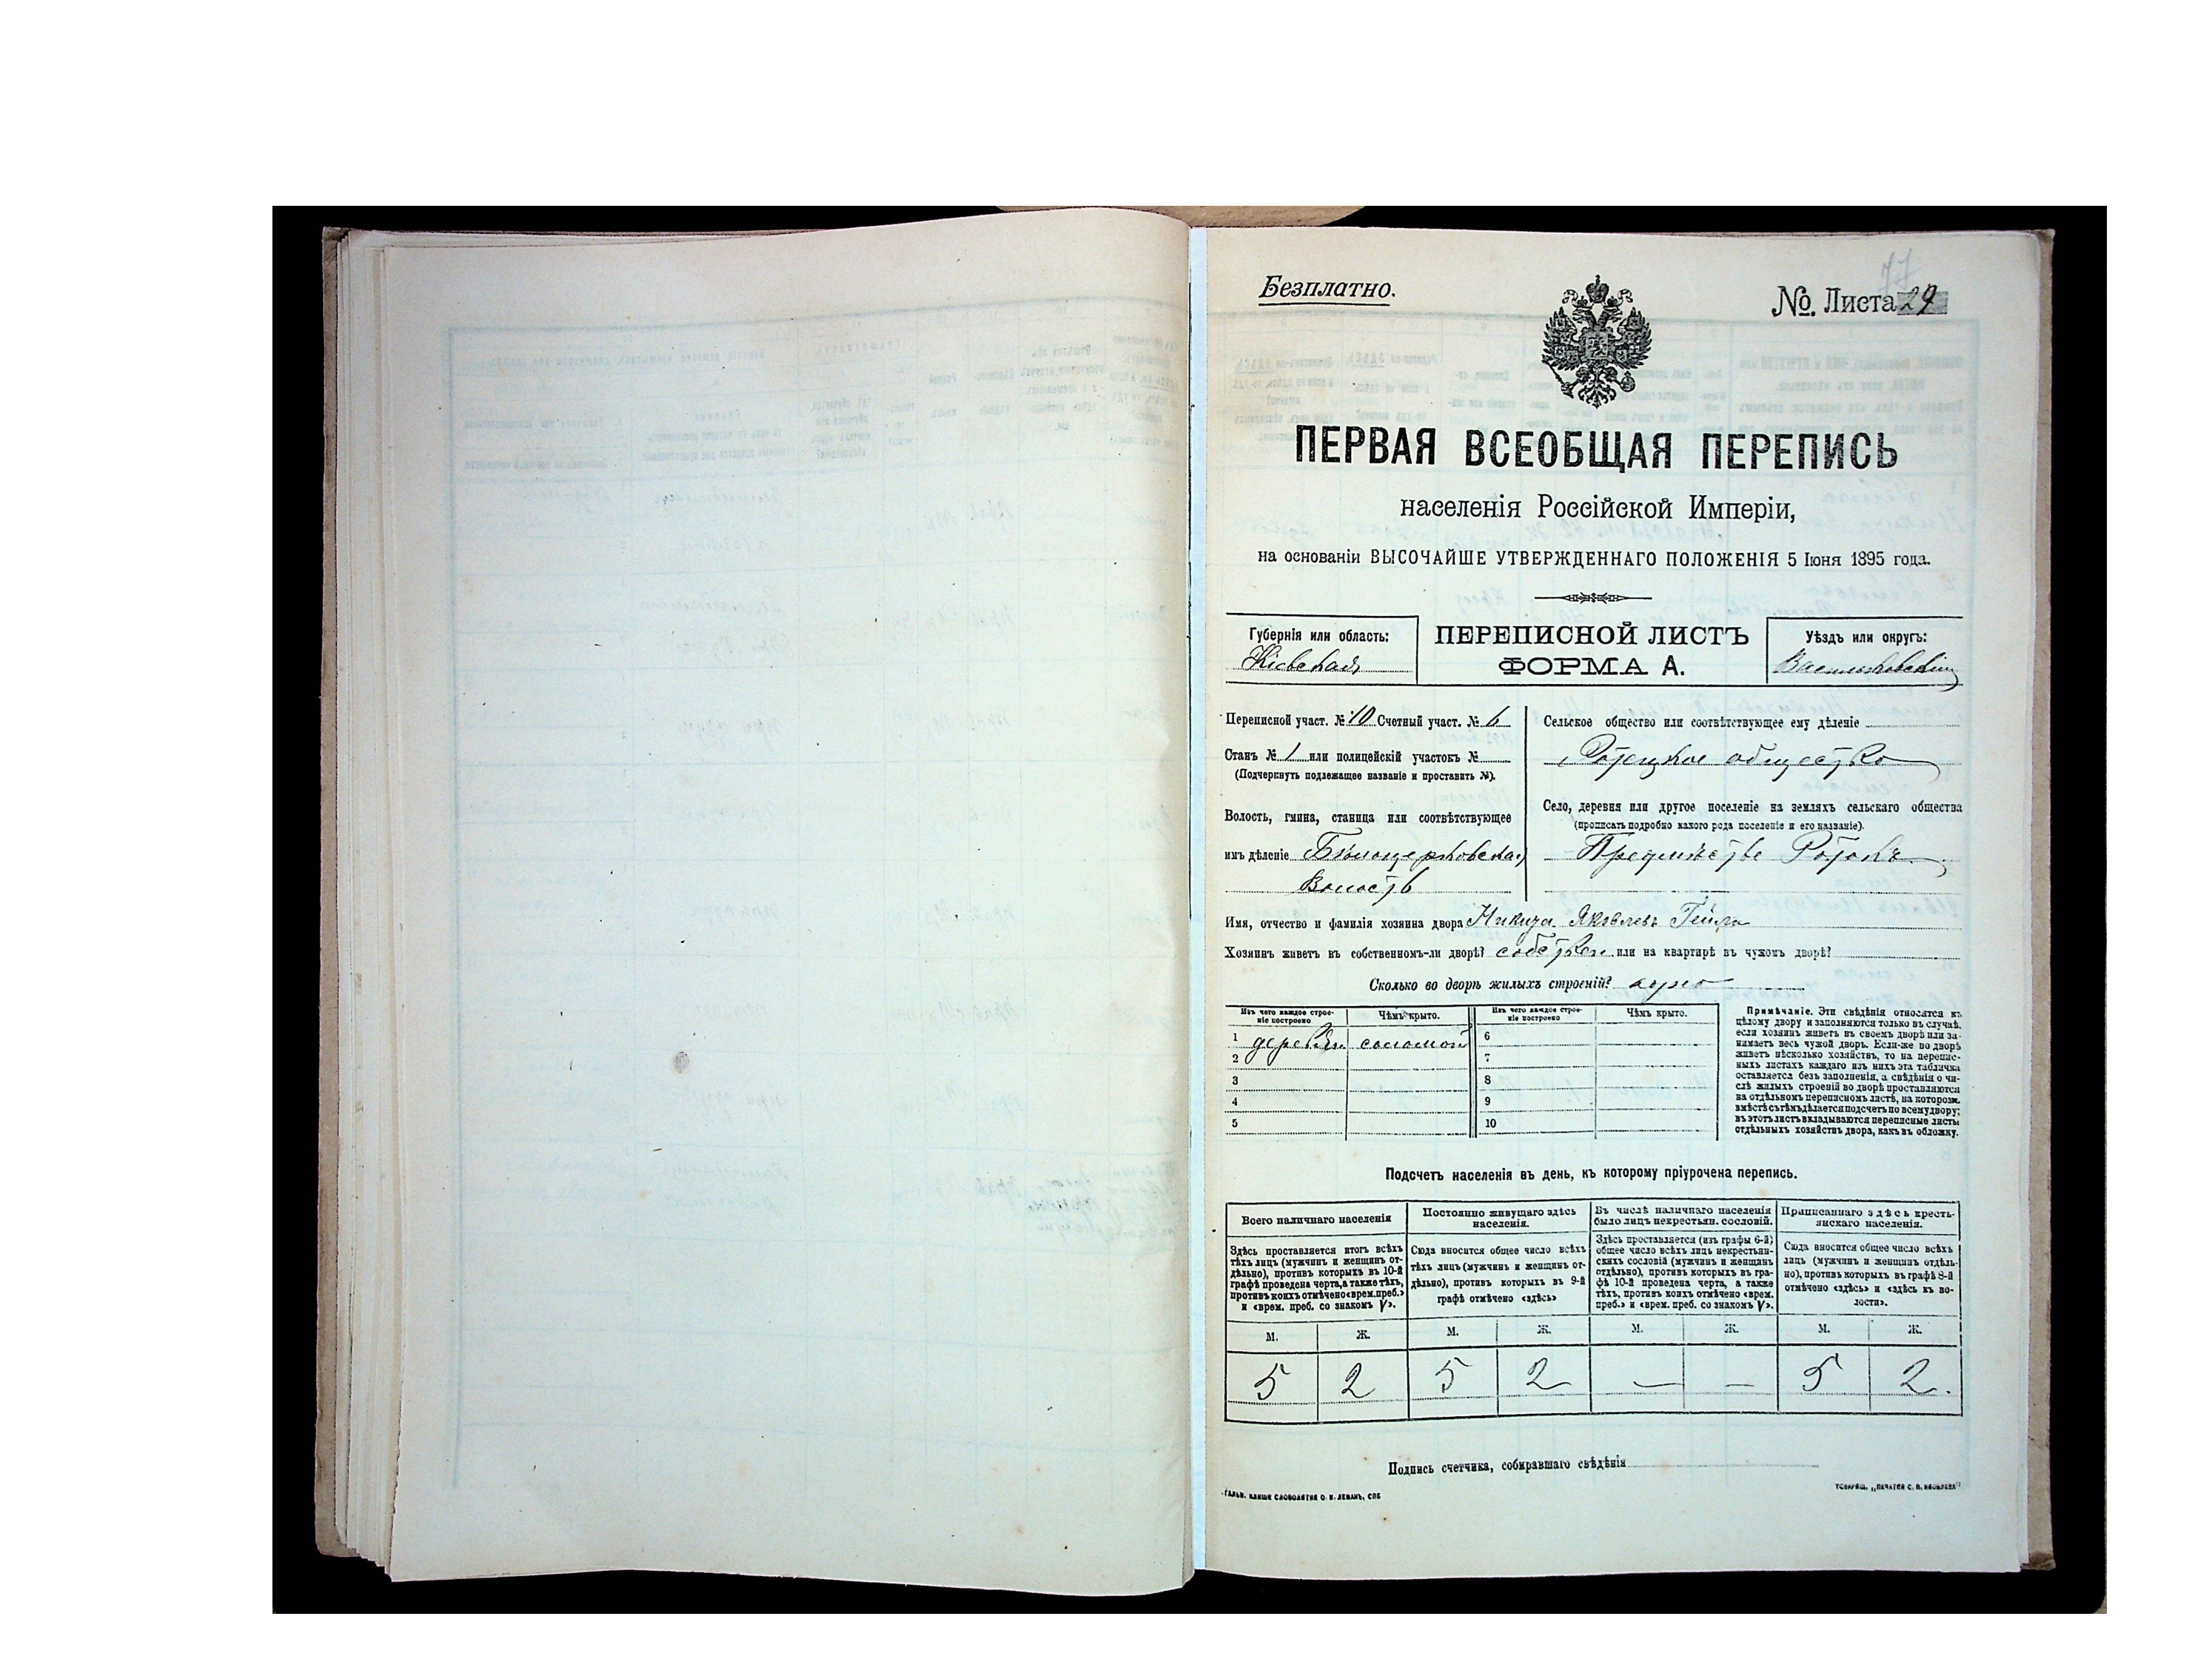 77
Безплатно.
№. Листа 29
ПЕРВАЯ ВСЕОБЩАЯ ПЕРЕПИСЬ
населенія Россійской Имперіи,
на основаніи ВЫСОЧАЙШЕ УТВЕРЖДЕННАГО ПОЛОЖЕНІЯ 5 Іюня 1895 года.
Губернія или область:
Кіевская
ПЕРЕПИСНОЙ ЛИСТЪ
ФОРМА А.
Уѣздъ или округъ:
Васильковскій
Переписной участ. № 10 Счетный участ. № 6
Станъ № 1 или полицейскій участокъ №
(Подчеркнуть подлежащее названіе и проставить №).
Волость, гмина, станица или соотвѣтствующее
имъ дѣленіе Бѣлоцерковская
волость
Сельское общество или соотвѣтствующее ему дѣленіе
Ротецкое общество
Село, деревня или другое поселеніе на земляхъ сельскаго общества
(прописать подробно какого рода поселеніе и его названіе).
Предмѣстье Ротокъ
Имя, отчество и фамилія хозяина двора Никита Яковлевъ
Хозяинъ живетъ въ собственномъ-ли дворѣ? собствен или на квартирѣ въ чужомъ дворѣ?
Сколько во дворѣ жилыхъ строеній? одно
Изъ чего каждое строе-
ніе построено
Чѣмъ крыто.
Изъ чего каждое строе-
ніе построено
Чѣмъ крыто.
1 деревян. соломой 6
2 7
3 8
4 9
5 10
Примѣчаніе. Эти свѣдѣнія относятся къ
цѣлому двору и заполняются только въ случаѣ,
если хозяинъ живетъ въ своемъ дворѣ или за-
нимаетъ весь чужой дворъ. Если-же во дворѣ
живетъ нѣсколько хозяйствъ, то на перепис-
ныхъ листахъ каждаго изъ нихъ эта табличка
оставляется безъ заполненія, а свѣдѣнія о чи-
слѣ жилыхъ строеній во дворѣ проставляются
на отдѣльномъ переписномъ листѣ, на которомъ
вмѣстѣ съ тѣмъ дѣлается подсчетъ по всему двору;
въ этотъ листъ вкладываются переписные листы
отдѣльныхъ хозяйствъ двора, какъ въ обложку.
Подсчетъ населенія въ день, къ которому пріурочена перепись.
Всего наличнаго населенія
Здѣсь проставляется итогъ всѣхъ
тѣхъ лицъ (мужчинъ и женщинъ от-
дѣльно), противъ которыхъ въ 10-й
графѣ проведена черта, а также тѣхъ,
противъ коихъ отмѣчено «врем. преб.»
и «врем. преб. со знакомъ V».
Постоянно живущаго здѣсь
населенія.
Сюда вносится общее число всѣхъ
тѣхъ лицъ (мужчинъ и женщинъ от-
дѣльно), противъ которыхъ въ 9-й
графѣ отмѣчено «здѣсь»
Въ числѣ наличнаго населенія
было лицъ некрестьян. сословій.
Здѣсь проставляется (изъ графы 6-й)
общее число всѣхъ лицъ некрестьян-
скихъ сословій (мужчинъ и женщинъ
отдѣльно), противъ которыхъ въ гра-
фѣ 10-й проведена черта, а также
тѣхъ, противъ коихъ отмѣчено «врем.
преб.» и «врем. преб. со знакомъ V».
Приписаннаго здѣсь кресть-
янскаго населенія.
Сюда вносится общее число всѣхъ
лицъ (мужчинъ и женщинъ отдѣль-
но), противъ которыхъ въ графѣ 8-й
отмѣчено «здѣсь» и «здѣсь къ во-
лости».
М. Ж. М. Ж. М. Ж. М. Ж.
5 2 5 2 — — 5 2.
Подпись счетчика, собиравшаго свѣдѣнія
ГАЛЬВ. КЛИШЕ СЛОВОЛИТНИ О. И. ЛЕМАНЪ, СПБ
ТОВАРИЩ. „ПЕЧАТНЯ С. П. ЯКОВЛЕВА"